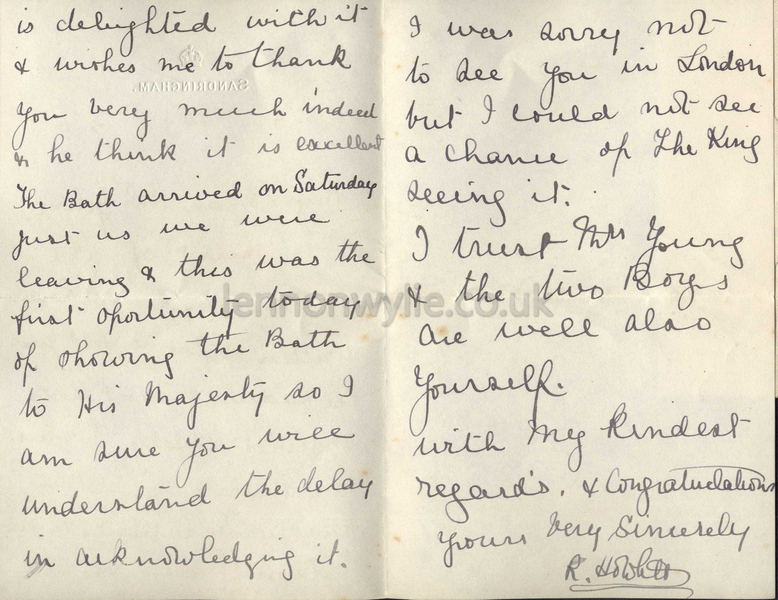 is delighted with it
& wishes me to thank
SANDRINGHAM.
you very much indeed
& he think it is excellent
The Bath arrived on Saturday
just us we were
leaving & this was the
first oportunity today
of showing the Bath
to His Majesty so I
am sure you will
understand the delay
in acknowledging it.
I was sorry not
to see you in London
but I could not see
a chance of The King
seeing it.
I trust Mrs Young
& the two Boys
are well also
yourself.
with my kindest
regards. & Congratulations
yours very sincerely
R. Howlett
lennonwylie.co.uk